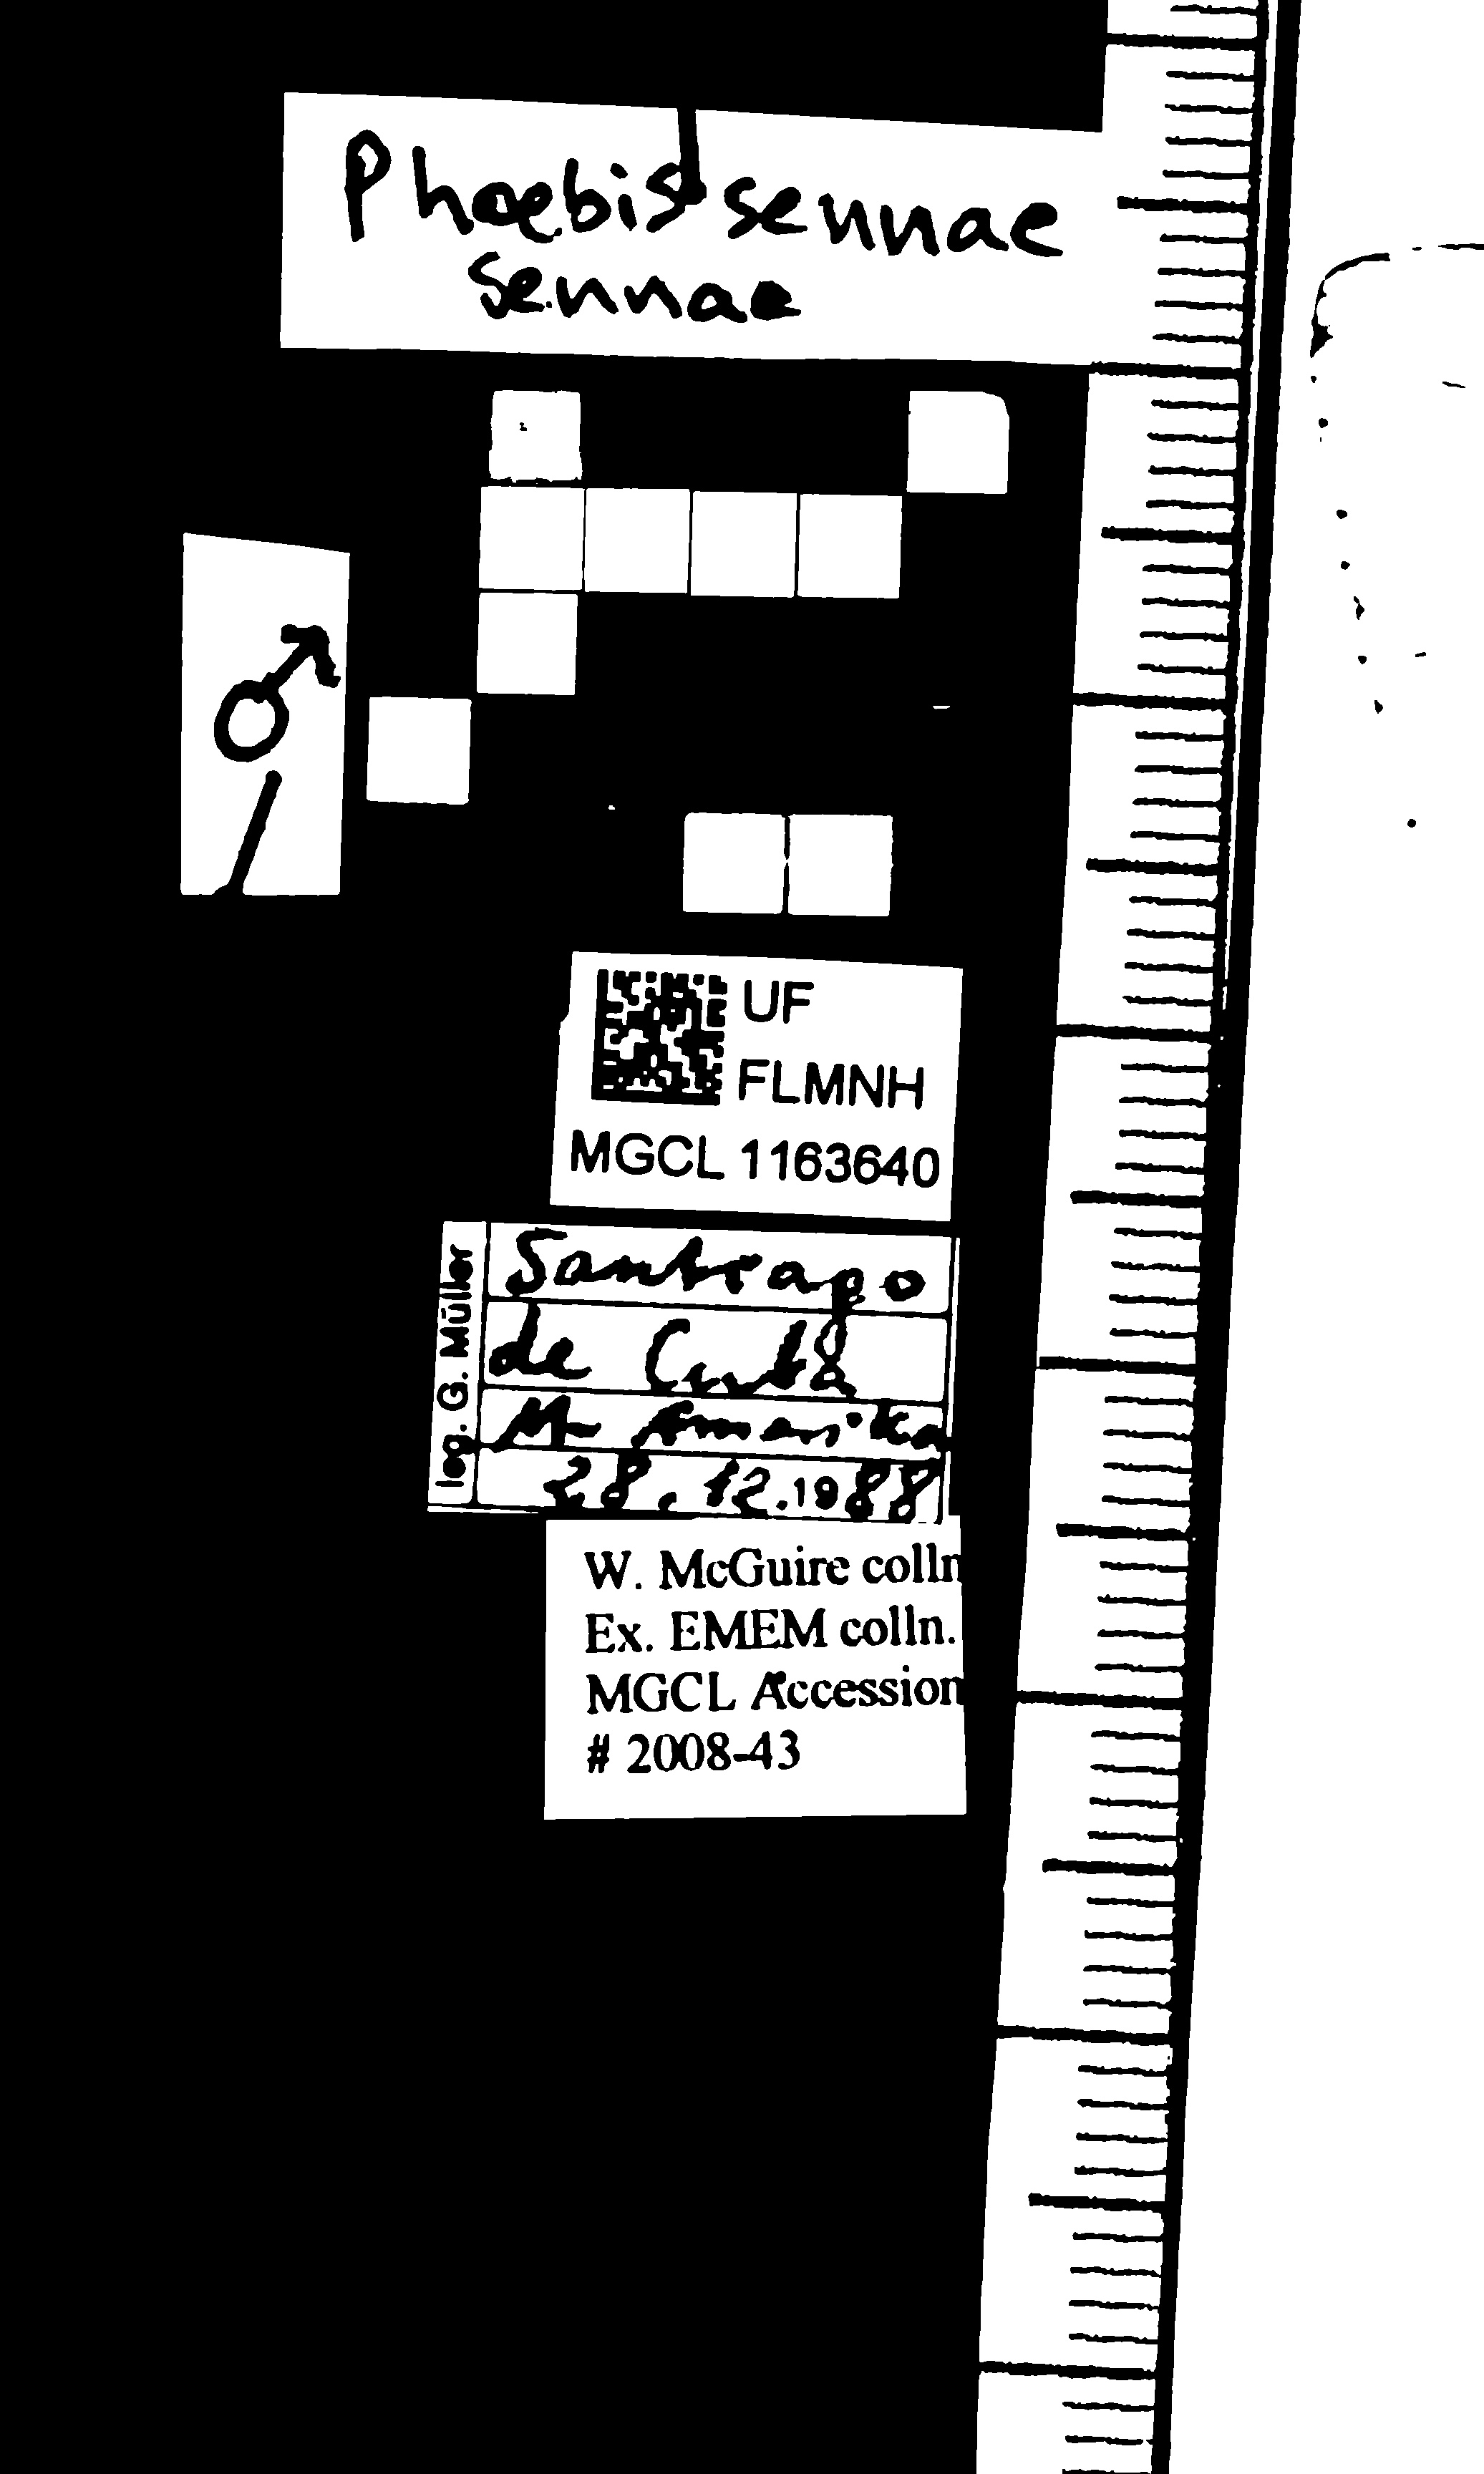 Phoebis sennae
sennae
♂
UF
FLMNH
MGCL 1163640
leg. G. Müller
Santiago
de Cuba
M-Amerika
28.12.1988
W. McGuire colln
Ex. EMEM colln.
MGCL Accession
# 2008-43